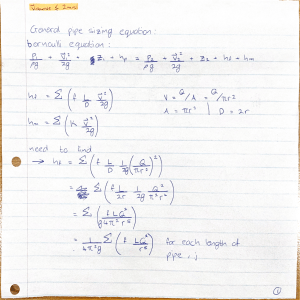 General pipe sizing equation:
bernoulli equation:
P₁/ρg + V₁²/2g + z₁ + hₚ = P₂/ρg + V₂²/2g + z₂ + hf + hm
hf = Σ (f L/D V²/2g)
V = Q/A = Q/πr²
hm = Σ (K V²/2g)
A = πr² | D = 2r
need to find
→ hf = Σ (f L/D 1/2g (Q/πr²)²)
= Σ (f L/2r 1/2g Q²/π²r⁴)
= Σ (f LQ²/g4π²r⁵)
= 1/4π²g Σ (f LQ²/r⁵) for each length of
pipe
①